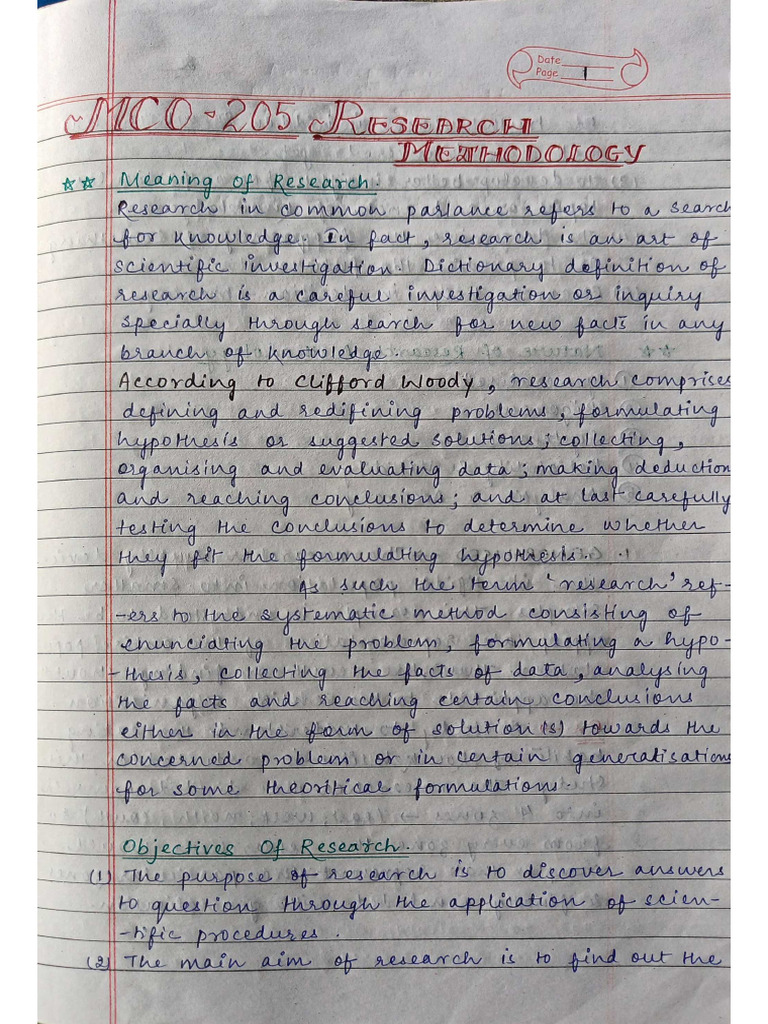 Date
Page 1
MCO-205 RESEARCH
METHODOLOGY
** Meaning of Research.
Research in common parlance refers to a search
for knowledge. In fact, research is an art of
scientific investigation. Dictionary definition of
research is a careful investigation or inquiry
specially through search for new facts in any
branch of knowledge.
According to Clifford Woody, research comprises
defining and redifining problems, formulating
hypothesis or suggested solutions; collecting,
organising and evaluating data; making deduction
and reaching conclusions; and at last carefully
testing the conclusions to determine whether
they fit the formulating hypothesis.
As such the term 'research' ref-
-ers to the systematic method consisting of
enunciating the problem, formulating a hypo-
-thesis, collecting the facts of data, analysing
the facts and reaching certain conclusions
either in the form of solution(s) towards the
concerned problem or in certain generalisations
for some theoritical formulations.
Objectives Of Research.
(1) The purpose of research is to discover answers
to question through the application of scien-
-tific procedures.
(2) The main aim of research is to find out the